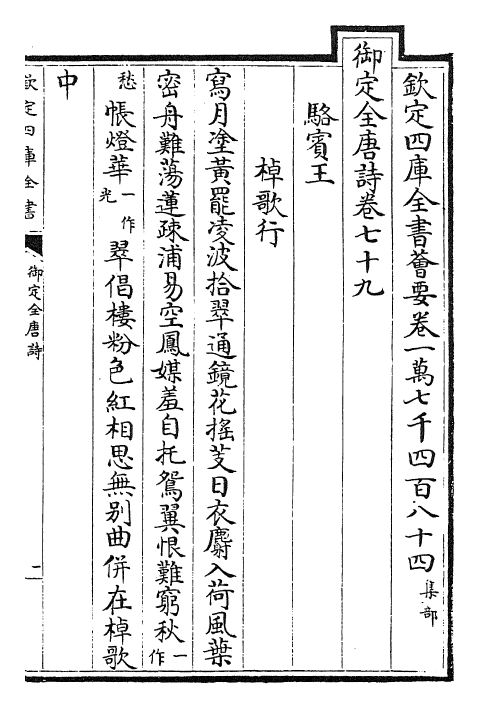 欽定四庫全書薈要卷一萬七千四百八十四 集部
御定全唐詩卷七十九
駱賓王
棹歌行
寫月塗黃罷凌波拾翠通鏡花搖芰日衣麝入荷風葉
密舟難蕩蓮疎浦易空鳳媒羞自托鴛翼恨難窮秋一作
愁帳燈華一作光翠倡樓粉色紅相思無别曲併在棹歌
中
欽定四庫全書 御定全唐詩 二